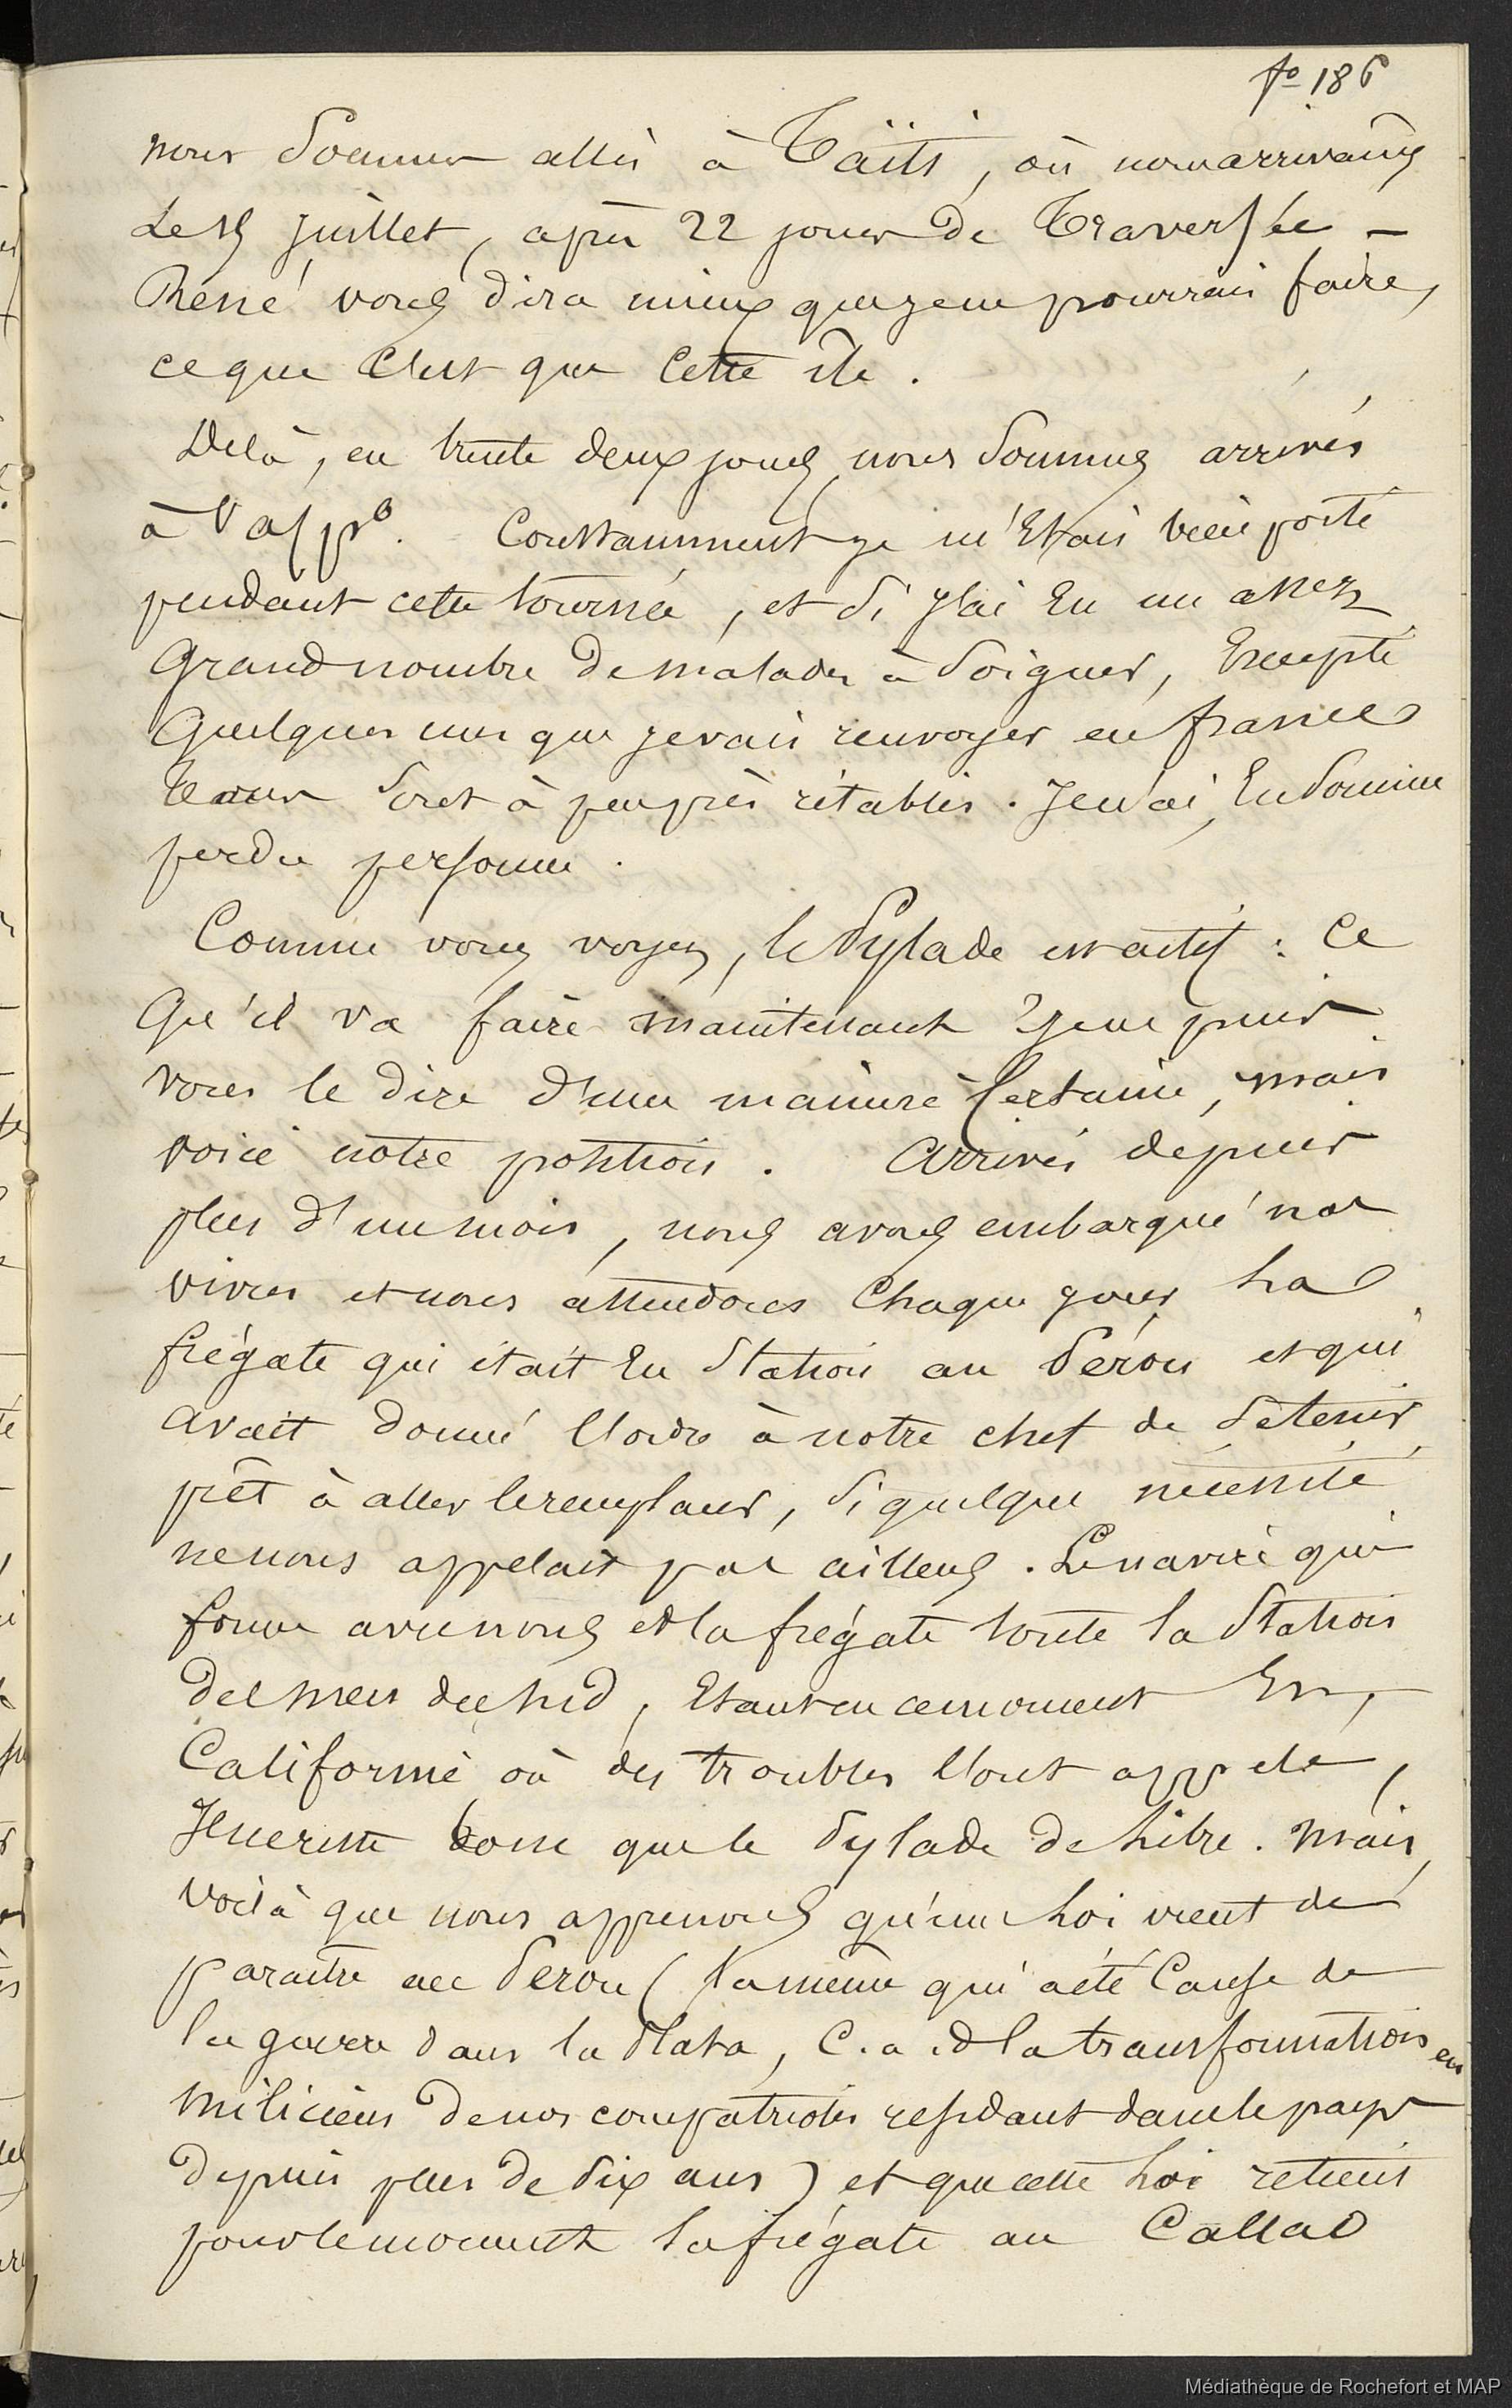 fo 186
nous sommes allés à Taïti, où nous arrivâmes
Le juillet, après 22 jours de Traversée –
René vous dira mieux que je ne pourrais faire,
ce que c'est que cette île.
De là, en trente deux jours, nous sommes arrivés
à Valpo. Constamment je m'étais bien porté
pendant cette tournée, et si j'ai eu un assez
Grand nombre de malades à soigner, Excepté
Quelques uns que je vais renvoyer en france
Tous sont à peu près rétablis. Je n'ai, En somme
perdu personne.
Comme vous voyez, le Pylade est actif : Ce
Qu'il va faire maintenant, je ne puis
vous le dire d'une manière certaine, mais
voici notre position. Arrivés depuis
plus d'un mois, nous avons embarqué nos
vivres et nous attendons Chaque jour La
frégate qui était En Station au Pérou et qui
avait donné l'ordre à notre chef de se tenir
prêt à aller le remplacer, si quelque nécessité
ne nous appelait par ailleurs. Le navire qui
forme avec nous et la frégate toute la Station
des mers du sud, Etant en ce moment En
Californie où des troubles l'ont appelé,
Il ne reste donc que le Pylade de Libre. Mais,
voilà que nous apprenons qu'une Loi vient de
paraître au Pérou (La même qui a été Cause de
la guerre dans la Plata, C.a.d la transformation en
Miliciens de nos compatriotes résidant dans le pays
depuis plus de dix ans) et que cette Loi retient
pour le moment la frégate au Callao
Médiathèque de Rochefort et MAP